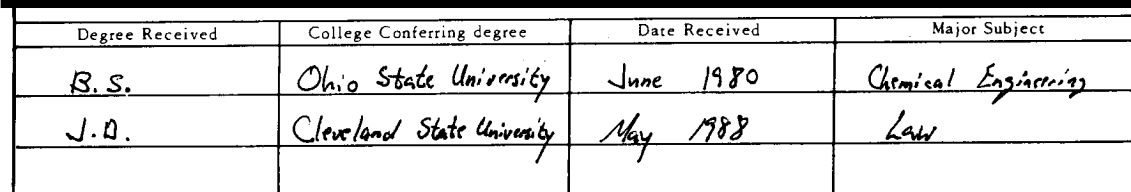 Degree Received College Conferring degree Date Received Major Subject
B.S. Ohio State University June 1980 Chemical Engineering
J.D. Cleveland State University May 1988 Law